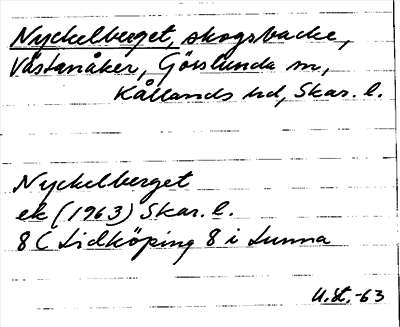 Nyckelberget, skogsbacke,
Västanåker, Gösslunda sn,
Kållands hd, Skar. l.
Nyckelberget
ek (1963) Skar. l.
8 C Lidköping 8 i Lunna
U.St. -63